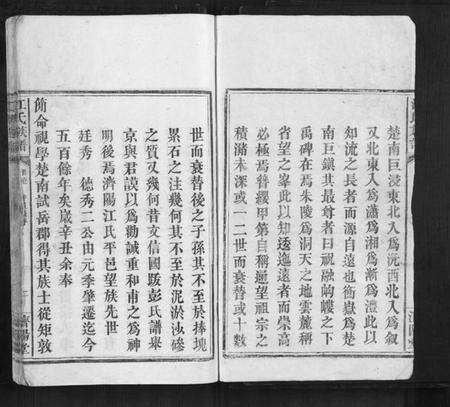 楚南巨浸東北入爲沅西北入爲叙
又北東入爲瀟爲湘爲漸爲澧此以
知流之長者而源自遠也衡嶽爲楚
南巨鎮其最尊者曰祝融岣嶁之下
禹碑在焉朱陵爲洞天之地雲麓稱
省望之峯此以知逶迤遠者而崇高
必極焉晉綬甲第自稱遡望祖宗之
積潴未深或一二世而衰替或十數
世而衰替後之子孫其不至於捧塊
累石之注幾何其不至於泥淤沙磣
之質又幾何昔文信國跋彭氏譜舉
京與君謨以爲勸誡重和甫之爲神
明後焉濟陽江氏平邑望族先世
廷秀 德秀二公由元季肇遷迄今
五百餘年矣嵗辛丑余奉
簡命視學楚南試岳郡得其族士從矩敦
江氏族譜
濟陽堂